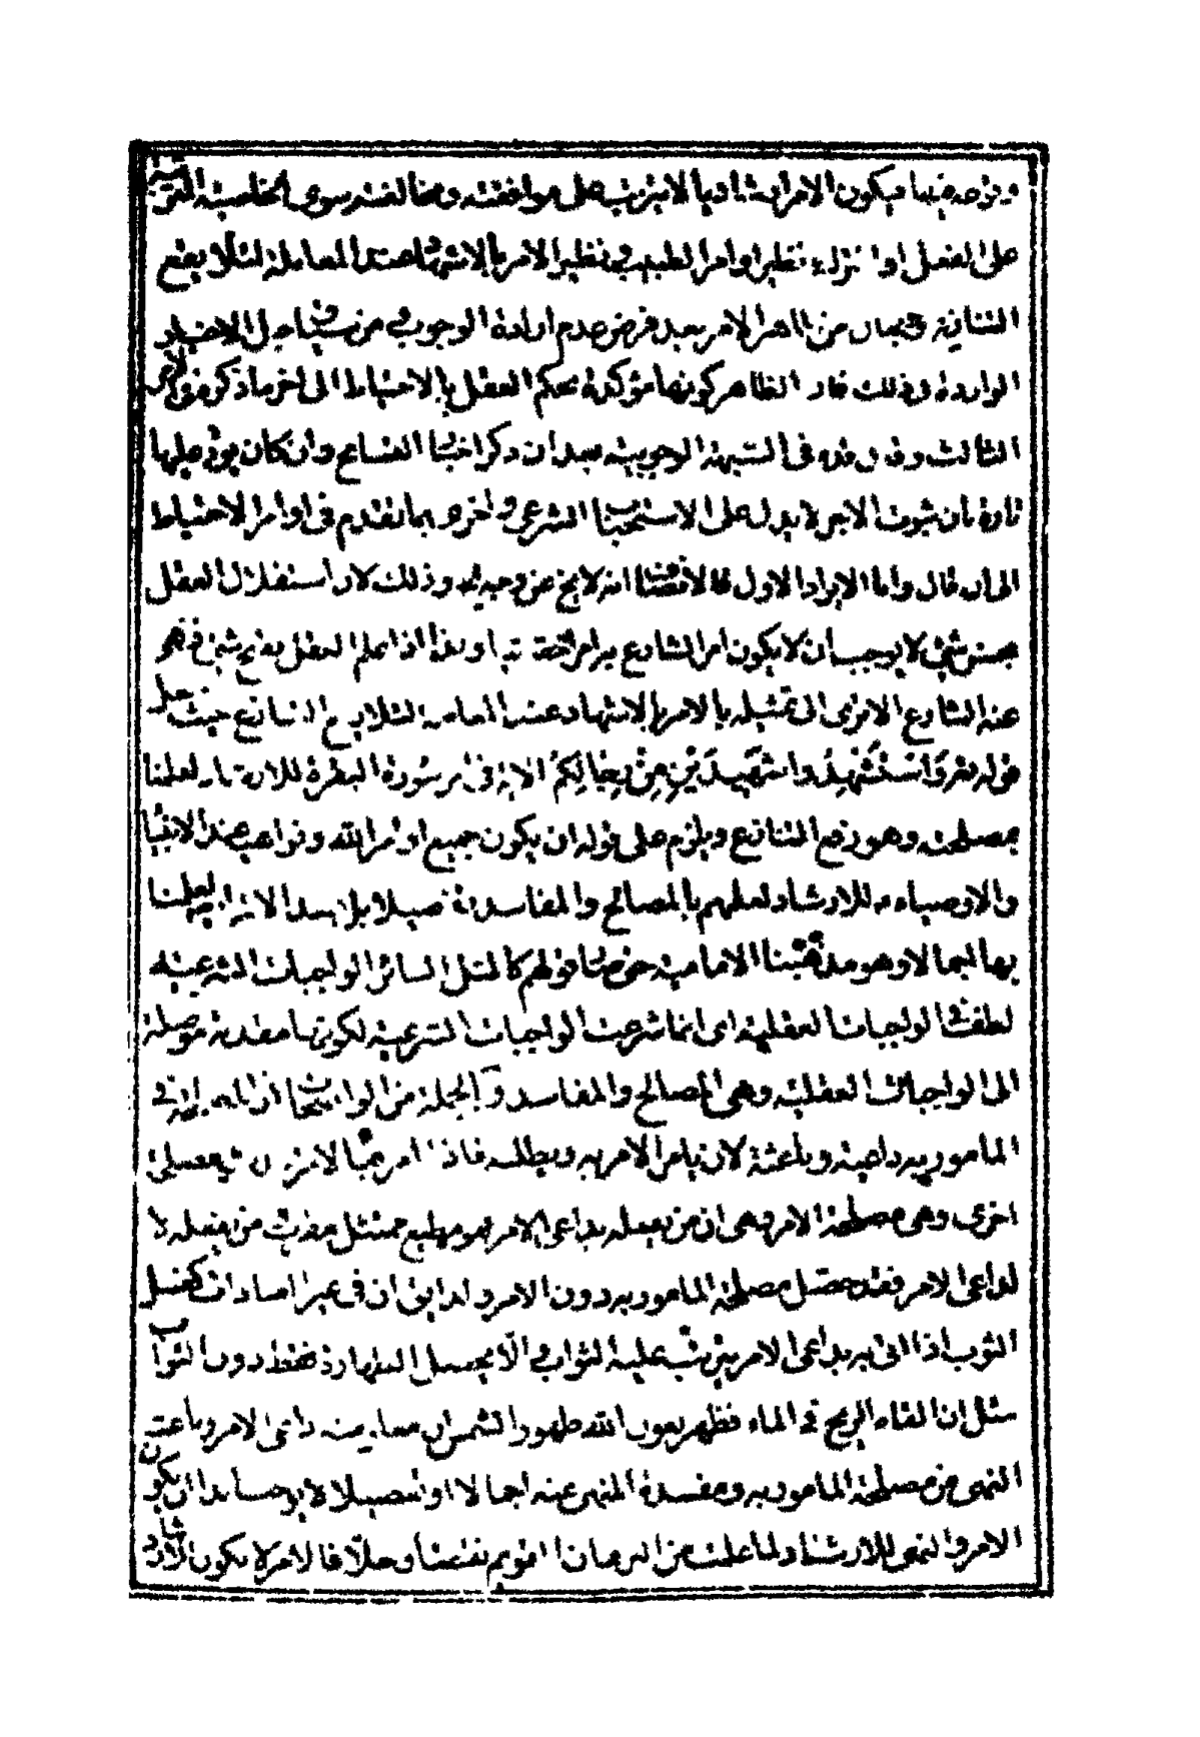 فيكون الامر ارشاديا لا يترتب على موافقته ومخالفته سوى الخاصية المترتبة
على الفعل او الترك نظير اوامر الطبيب ونظير الامر بالاشهاد عند المعاملة لئلا يقع
التنازع من الامر بعد فرض عدم ارادة الوجوب من قبيل الاخبار
الواردة في ذلك فان الظاهر كونها مؤكدة لحكم العقل بالاحتياط الى اخر ما ذكره وفي الامر
الثالث في الشبهة الوجوبية بعد ان ذكر اخبار التسامح وان كان يورد عليها
تارة بان ثبوت الاجر لا يدل على الاستحباب الشرعي واخرى بما تقدم في اوامر الاحتياط
الى ان قال واما الايراد الاول فالانصاف انه لا يخ عن وجه وذلك لان استقلال العقل
بحسن شئ لا يوجب ان لا يكون امر الشارع به امر حقيقة اذا علم العقل بقبح شئ فنهى
عنه الشارع الا ترى ان تمثيله بالامر بالاشهاد عند المعاملة لئلا يقع التنازع حيث حمل
قوله تعر وَاسْتَشْهِدُوا شَهِيدَيْنِ مِنْ رِجَالِكُمْ الاية في سورة البقرة للارشاد لعلمنا
بمصلحته وهو رفع التنازع ويلزم على قوله ان يكون جميع اوامر الله ونواهيه عند الانبياء
والاوصياء للارشاد لعلمهم بالمصالح والمفاسد تفصيلا بل لعلمنا
بها اجمالا وهو مذهبنا الامامية خصوصا قولهم كالمثل السائر الواجبات الشرعية
لطف في الواجبات العقلية اى انما شرعت الواجبات الشرعية لكونها مقدمة موصلة
الى الواجبات العقلية وهى المصالح والمفاسد وبالجملة من الواضحات ان المصلحة في
المامور به داعية وباعثة لان يامر الامر به ويطلبه فاذا امر بها الامر مصلحة
اخرى وهى مصلحة الامر وهى ان من يعمله بداعى الامر فهو مطيع ممتثل مقرب من يفعله لا
لداعى الامر فقد حصل مصلحة المامور به دون الامر ولذا ان في غير العبادات كغسل
الثوب اذا اتى به بداعى الامر يترتب عليه الثواب والّا يحصل الطهارة فقط دون الثواب
مثل ان القاه الريح في الماء فظهر بعون الله ظهور الشمس ان داعى الامر وباعث
النهى من مصلحة المامور به ومفسدة المنهى عنه اجمالا او تفصيلا لا يوجب ابدا ان يكون
الامر والنهى للارشاد لما علمت من البرهان القويم نقضا وحلّا فالامر لا يكون للارشاد